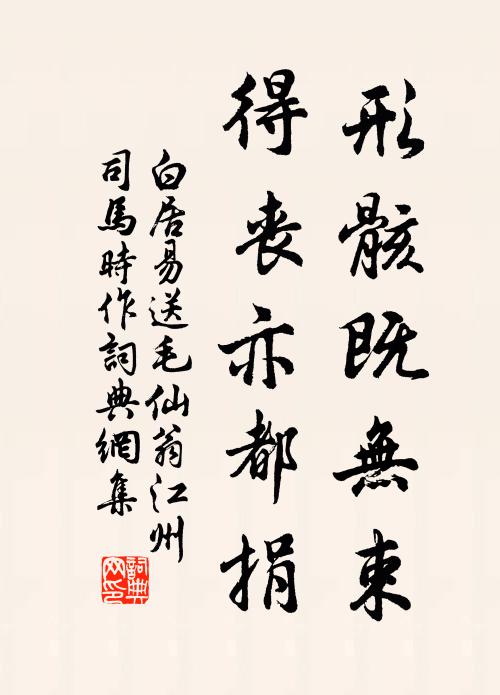 形骸既無束
得喪亦都捐
白居易送毛仙翁江州
司馬時作詞典網集
詞典
网印